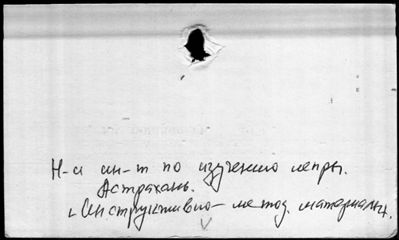 Н-и ин-т по изучению лепры.
Астрахань.
Инструктивно-метод. материалы.